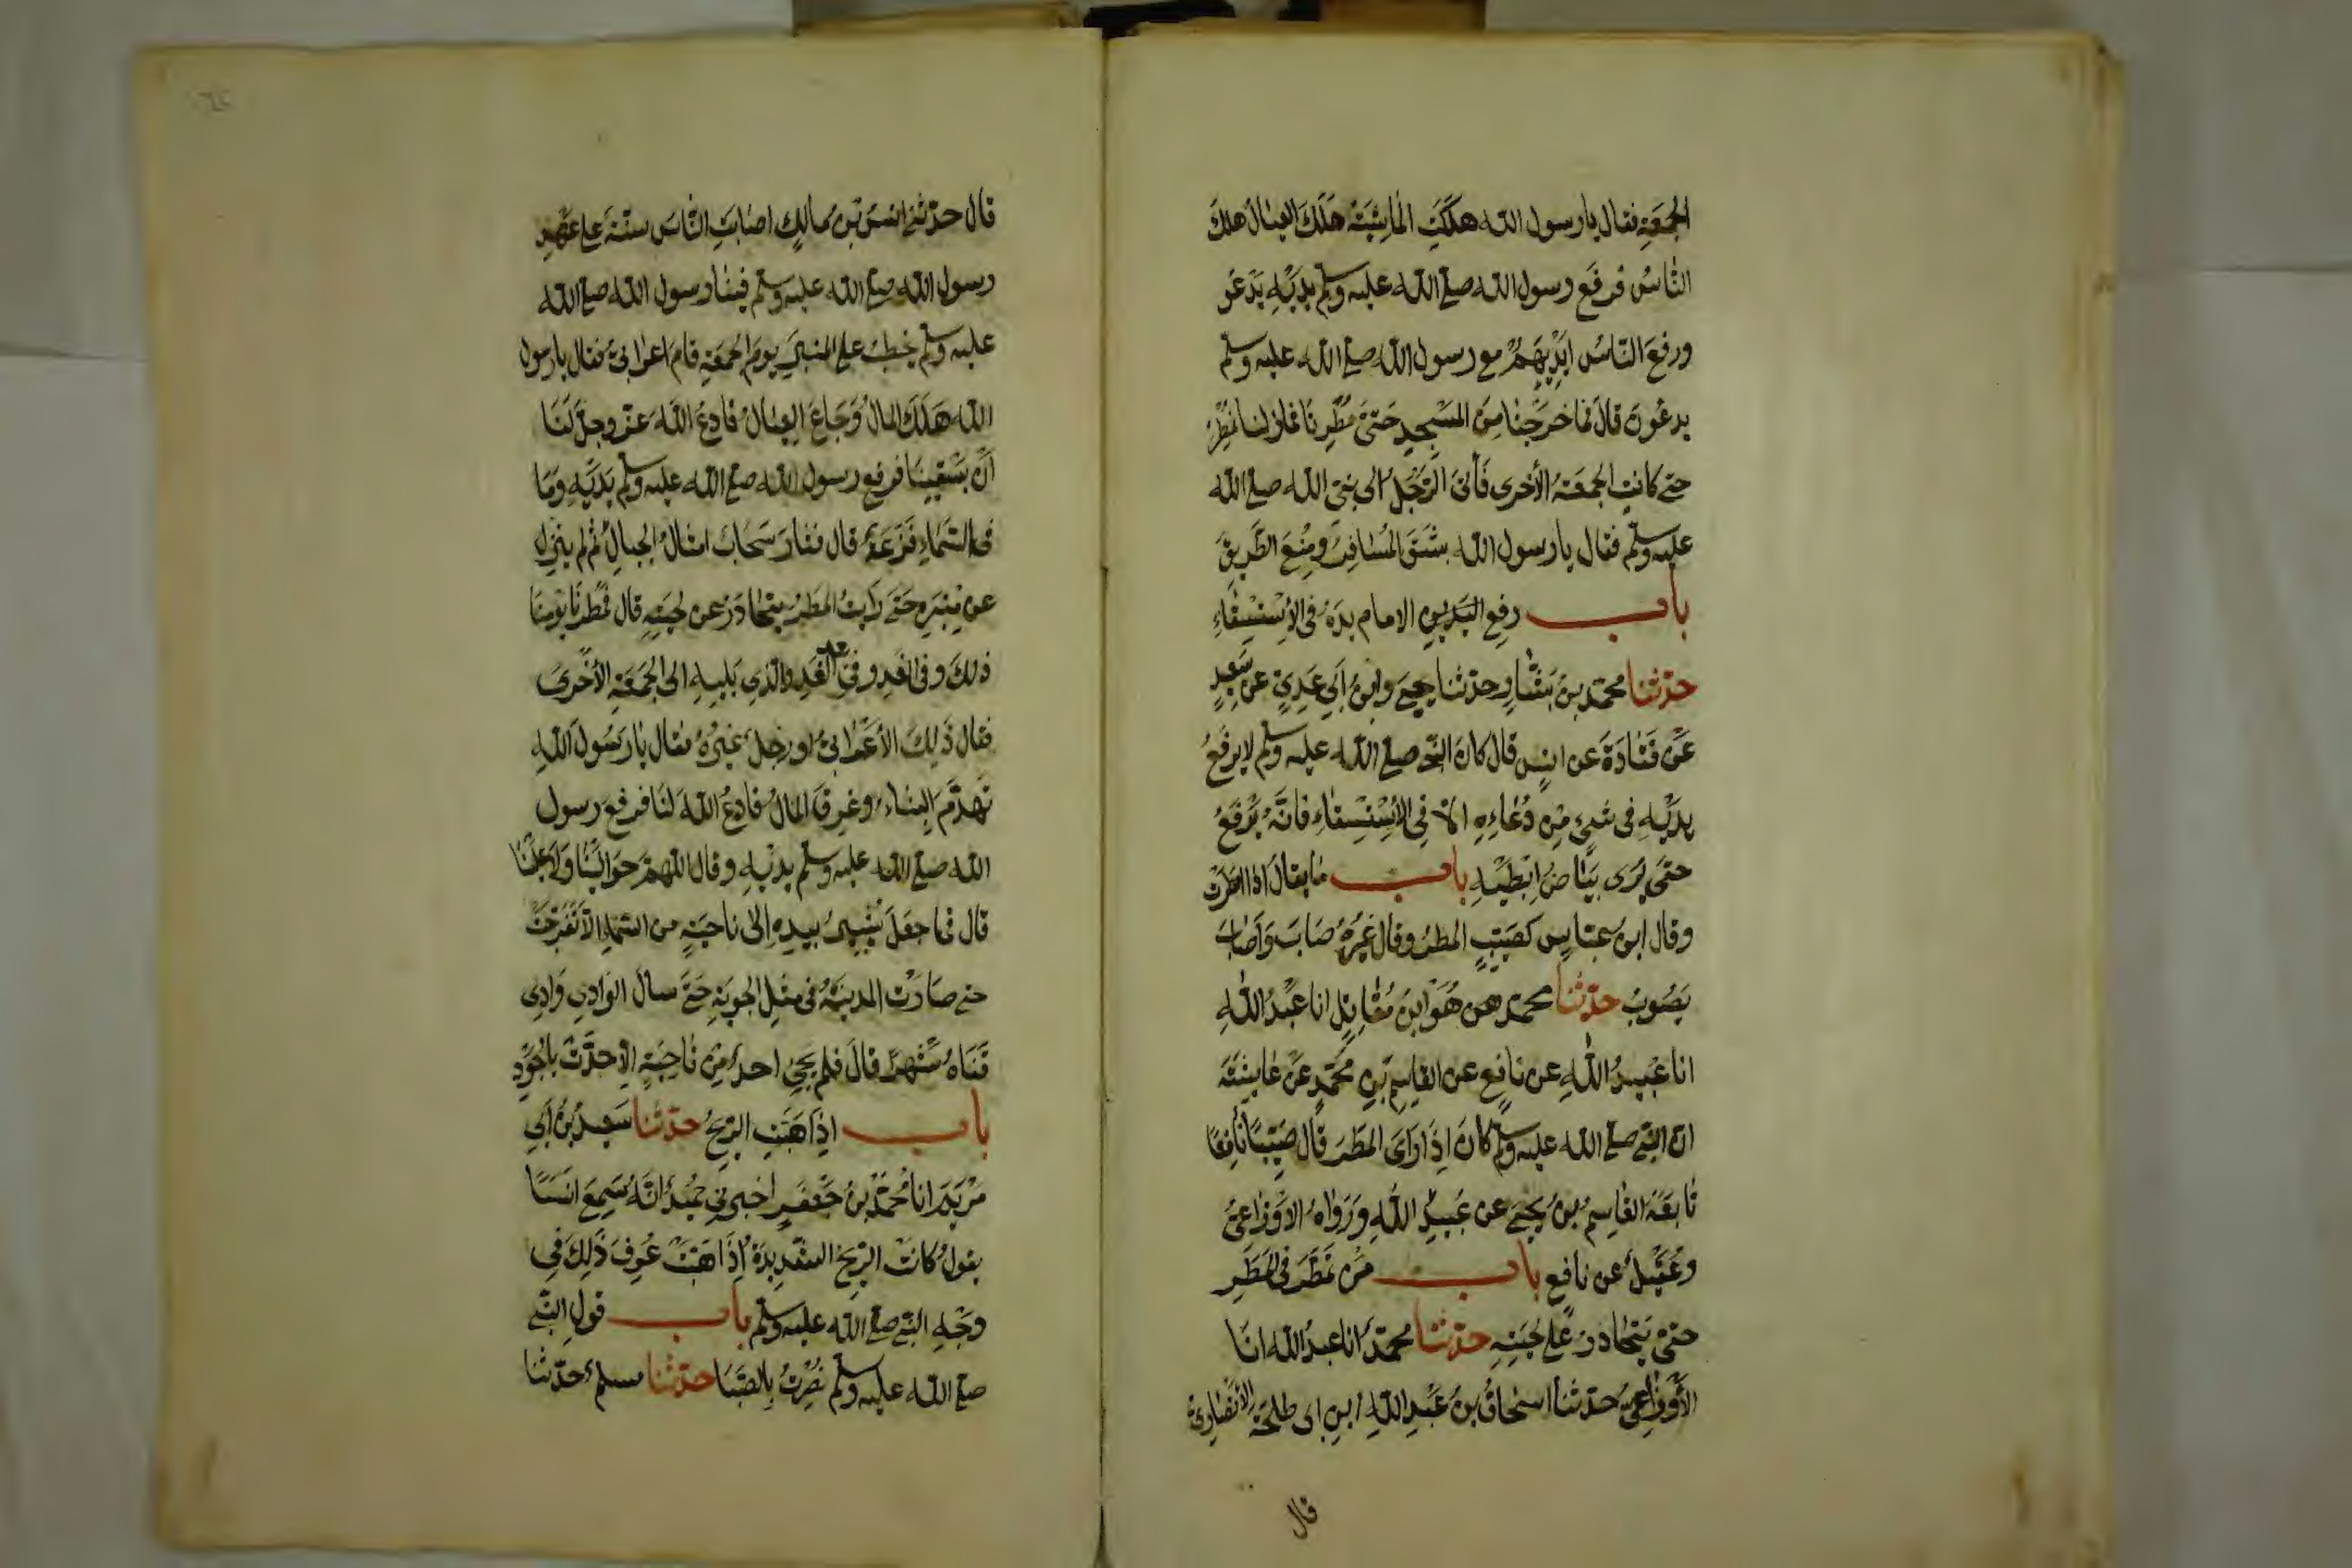 الجمعة فقال يا رسول الله هلكت الماشية هلك العيال هلك
الناس فرفع رسول الله صلى الله عليه وسلم يديه يدعو
ورفع الناس ايديهم مع رسول الله صلى الله عليه وسلم
يدعون قال فما خرجنا من المسجد حتى مطرنا فما زلنا نمطر
حتى كانت الجمعة الأخرى فأتى الرجل الى نبي الله صلى الله
عليه وسلم فقال يا رسول الله بشق المسافر ومنع الطريق
باب رفع اليدين الامام يده في الاستسقاء
حدثنا محمد بن بشار وحدثنا يحيى وابن أبي عدي عن سعيد
عن قتادة عن انس قال كان النبي صلى الله عليه وسلم لا يرفع
يديه في شيء من دعائه الا في الاستسقاء فانه يرفع
حتى يرى بياض ابطيه باب ما يقال اذا امطرت
وقال ابن عباس كصيب المطر وقال غيره صاب وأصاب
يصوب حدثنا محمد هو ابن مقاتل انا عبد الله
انا عبيد الله عن نافع عن القاسم بن محمد عن عايشة
ان النبي صلى الله عليه وسلم كان اذا رأى المطر قال صيبا نافعا
تابعه القاسم بن يحيى عن عبيد الله ورواه الاوزاعي
وعقيل عن نافع باب من تمطر في المطر
حتى يتحادر على لحيته حدثنا محمد انا عبد الله انا
الأوزاعي حدثنا اسحاق بن عبد الله ابن ابى طلحة الأنصاري
قال
قال حدثني انس بن مالك اصابت الناس سنة على عهد
رسول الله صلى الله عليه وسلم فبينا رسول الله صلى الله
عليه وسلم يخطب على المنبر يوم الجمعة قام اعرابي فقال يا رسول
الله هلك المال وجاع العيال فادع الله عز وجل لنا
أن يسقينا فرفع رسول الله صلى الله عليه وسلم يديه وما
في السماء قزعة قال فثار سحاب امثال الجبال ثم لم ينزل
عن منبره حتى رأيت المطر يتحادر عن لحيته قال فمطرنا يومنا
ذلك وفي الغد وفي بعد الغد والذي يليه الى الجمعة الأخرى
فقال ذلك الأعرابي او رجل غيره فقال يا رسول الله
تهدم البناء وغرق المال فادع الله لنا فرفع رسول
الله صلى الله عليه وسلم يديه وقال اللهم حوالينا ولا علينا
قال فما جعل يشير بيده إلى ناحية من السماء الا تفرجت
حتى صارت المدينة في مثل الجوبة حتى سال الوادي وادي
قناة شهرا قال فلم يجئ احد من ناحية الا حدث بالجود
باب اذا هبت الريح حدثنا سعيد بن أبي
مريم انا محمد بن جعفر اخبرني حميد انه سمع انسا
يقول كانت الريح الشديدة اذا هبت عرف ذلك في
وجه النبي صلى الله عليه وسلم باب قول النبي
صلى الله عليه وسلم نصرت بالصبا حدثنا مسلم حدثنا